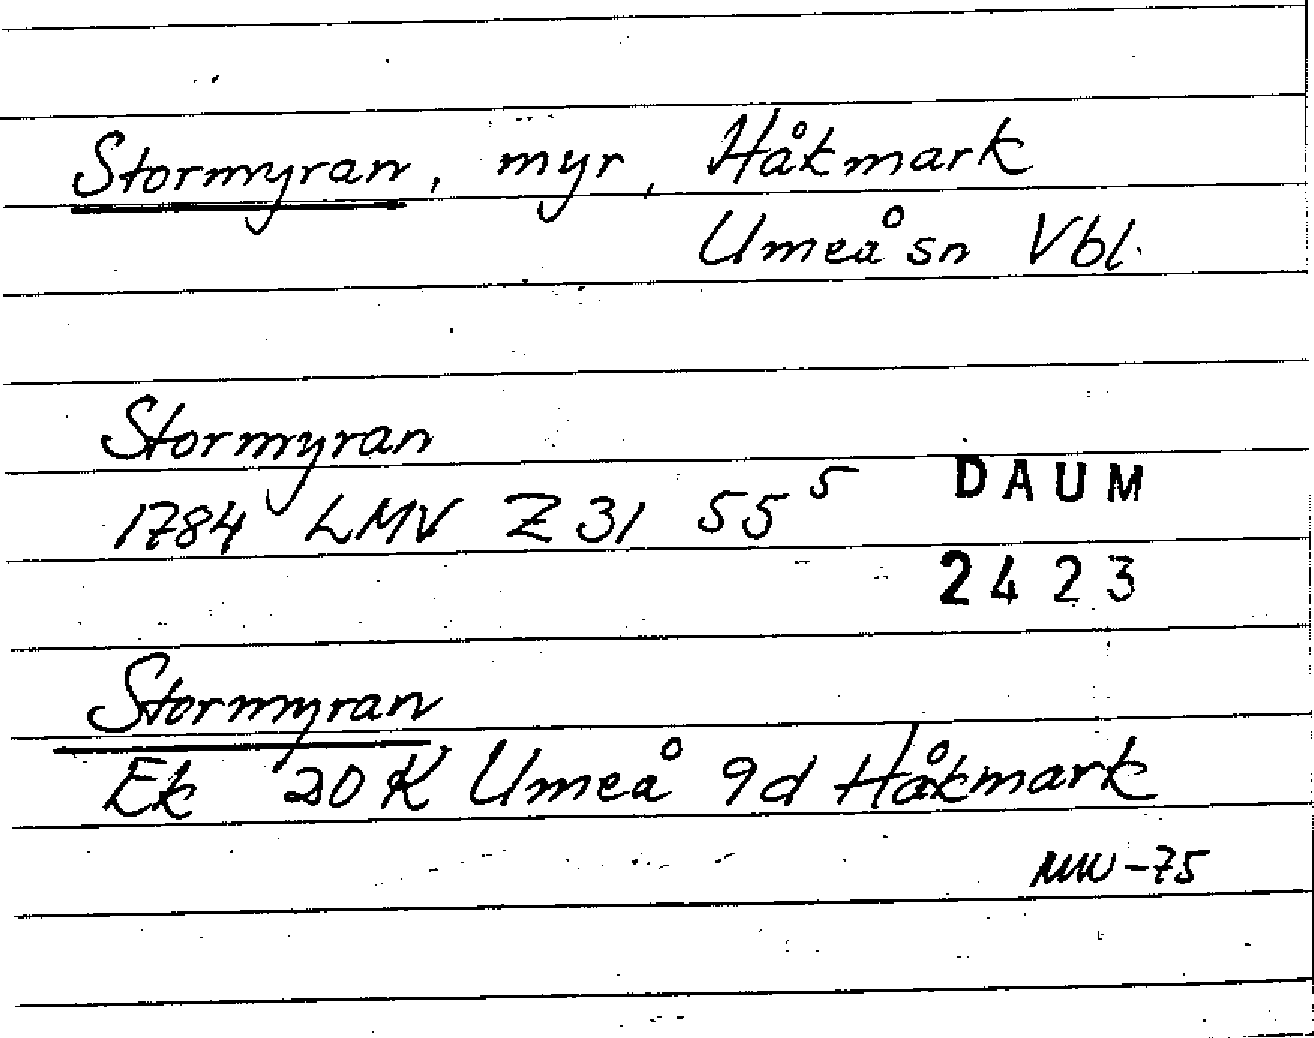 Stormyran, myr, Håkmark
Umeå sn Vbl.
Stormyran
1784 LMV Z 31 55⁵
DAUM
2423
Stormyran
Ek 20 K Umeå 9d Håkmark
MW-75